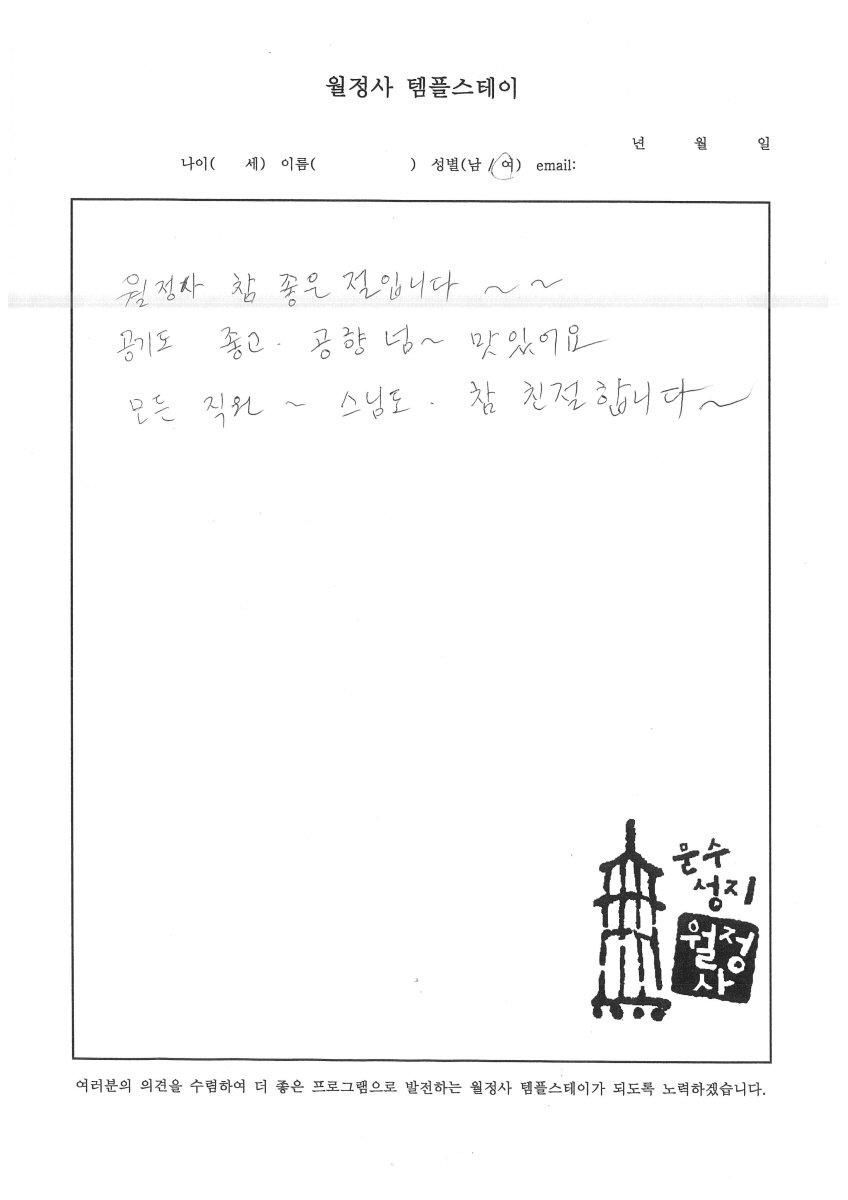 월정사 템플스테이
년 월 일
나이( 세) 이름( ) 성별(남 / 여) email:
월정사 참 좋은 절입니다 ~ ~
공기도 좋고. 공향 넘~ 맛있어요
모든 직원 ~ 스님도. 참 친절합니다~
문수
성지
월정
사
여러분의 의견을 수렴하여 더 좋은 프로그램으로 발전하는 월정사 템플스테이가 되도록 노력하겠습니다.